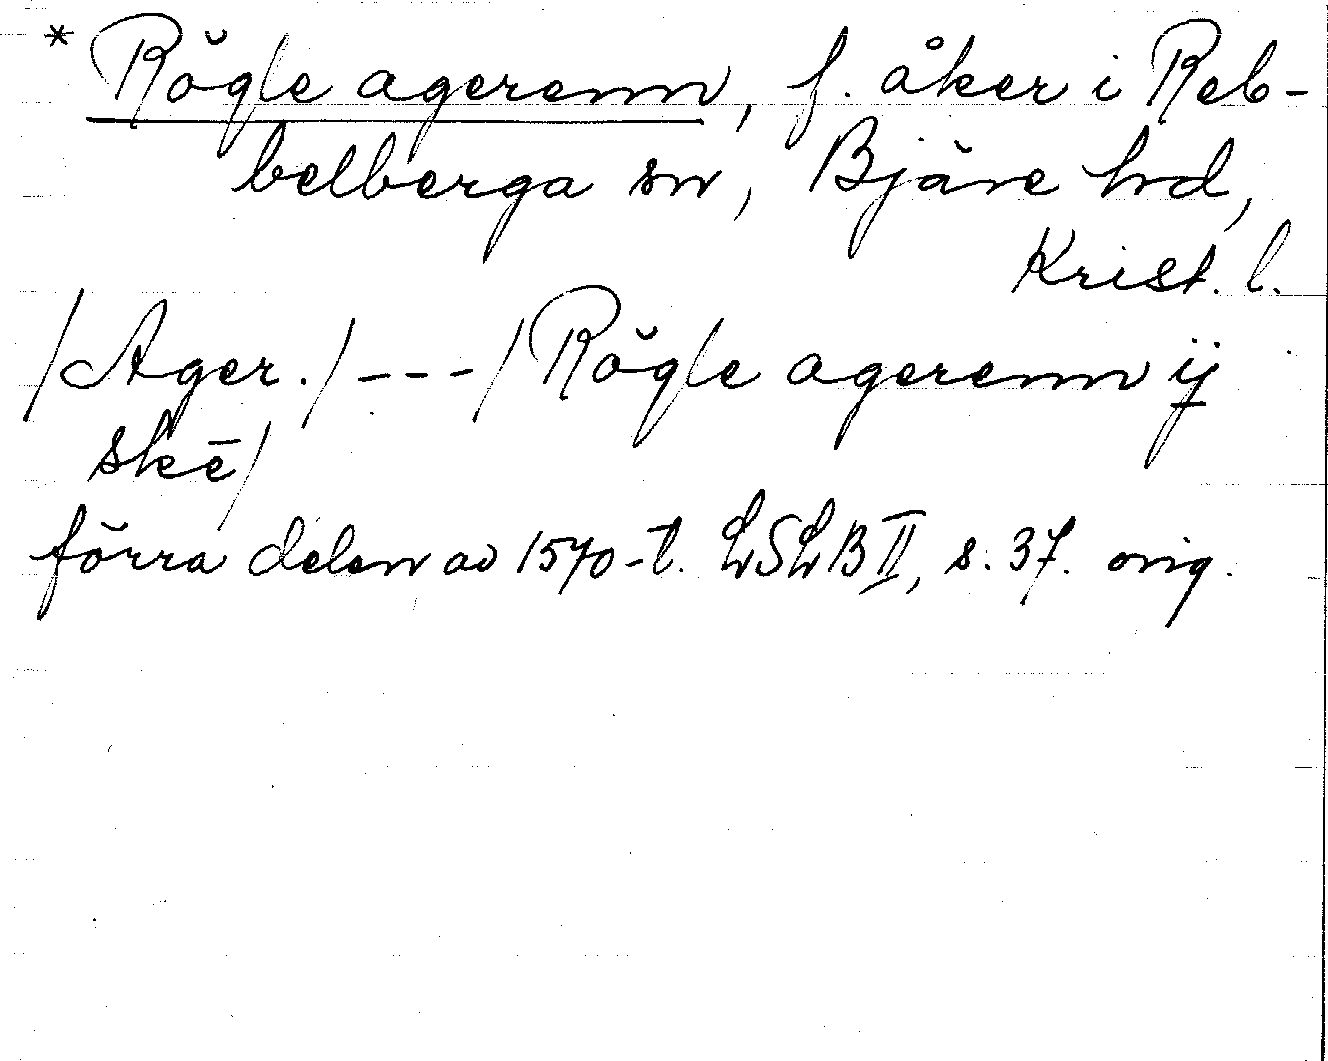 * Rögle agerenn, f. åker i Reb-
belberga sn, Bjäre hd,
Krist. l.
/Ager./ --- /Rögle agerenn ij
skē/
förra delen av 1570-t. LSLB II, s. 37. orig.